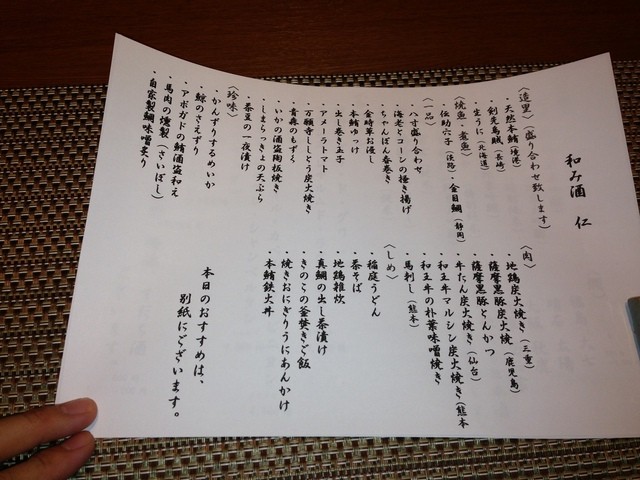 和み酒 仁
〈造里〉(盛り合わせ致します)
・天然本鮪(境港)
・剣先烏賊(長崎)
・生うに(北海道)
〈焼魚・煮魚〉
・伝助穴子(淡路)・金目鯛(静岡)
〈一品〉
・八寸盛り合わせ
・海老とコーンの掻き揚げ
・ちゃんぽん春巻き
・金時草お浸し
・本鮪ゆっけ
・出し巻き玉子
・アメーラトマト
・万願寺ししとう炭火焼き
・青森のもずく
・いかの酒盗陶板焼き
・しまらっきょの天ぷら
・茶豆の一夜漬け
〈珍味〉
・かんずりするめいか
・鯨のさえずり
・アボガドの鮪酒盗和え
・馬肉の燻製(さいぼし)
・自家製鯛味噌炙り
〈肉〉
・地鶏炭火焼き(三重)
・薩摩黒豚炭火焼(鹿児島)
・薩摩黒豚とんかつ
・牛たん炭火焼き(仙台)
・和王牛マルシン炭火焼き(熊本
・和王牛の朴葉味噌焼き
・馬刺し(熊本)
〈しめ〉
・稲庭うどん
・茶そば
・地鶏雑炊
・真鯛の出し茶漬け
・きのこの釜焚きご飯
・焼きおにぎりうにあんかけ
・本鮪鉄火丼
本日のおすすめは、
別紙にございます。